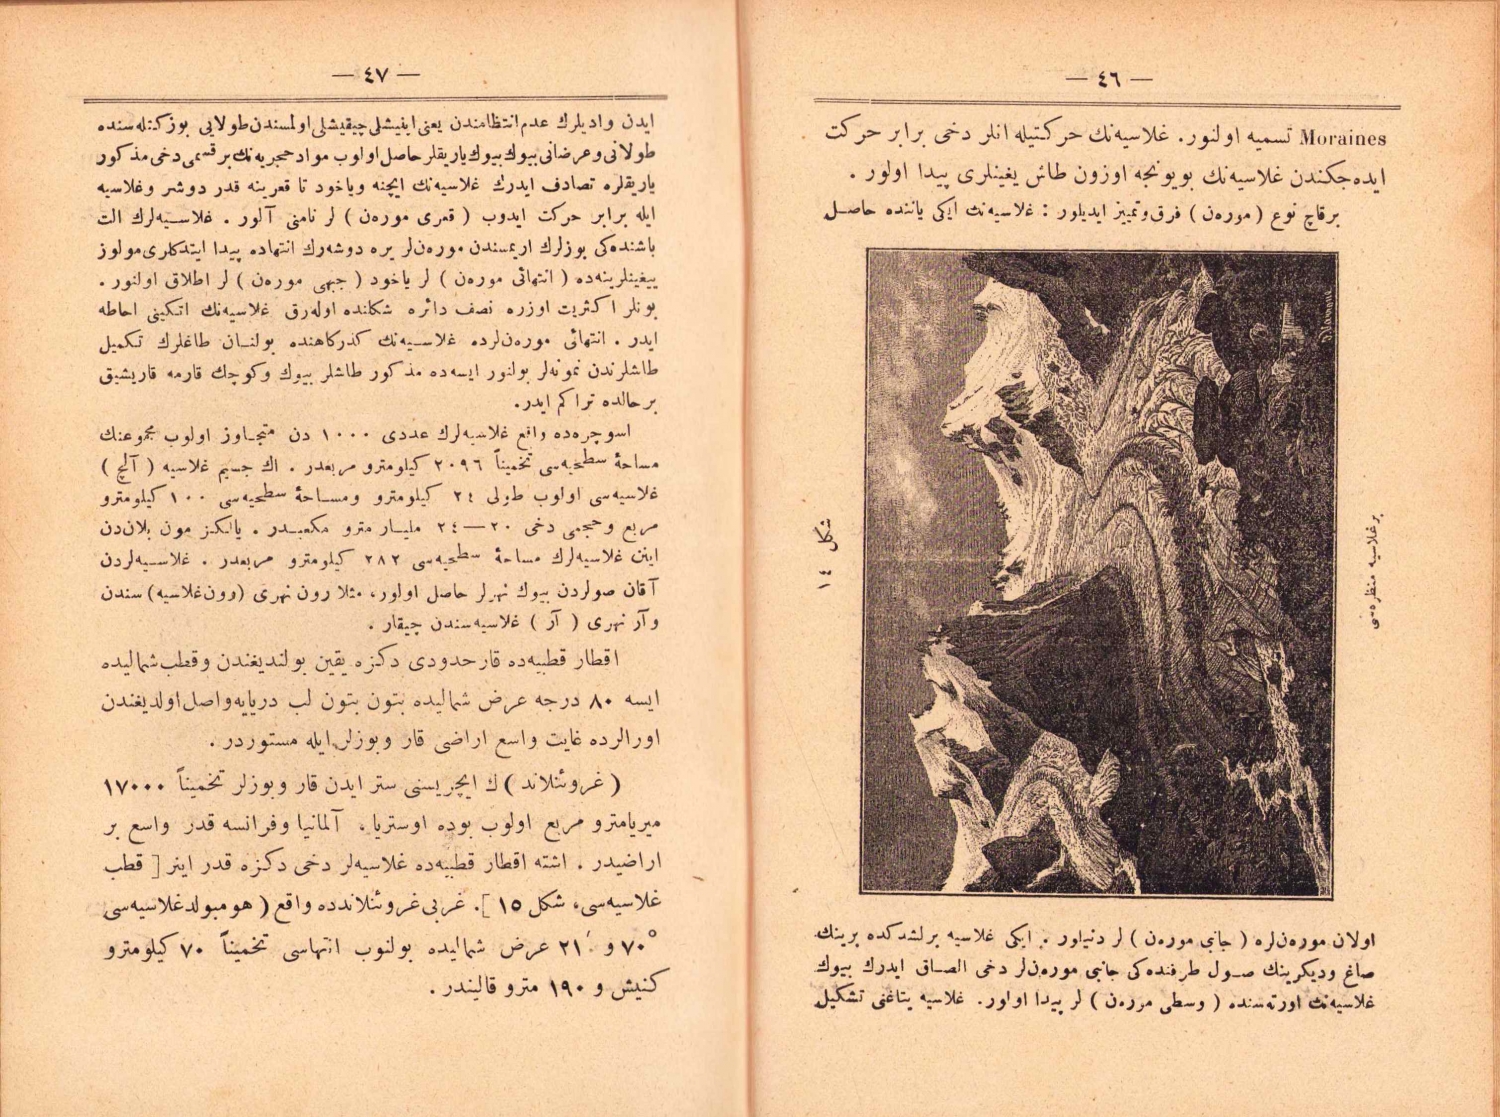 — ٤٦ —
Moraines تسمیه اولنور. غلاسیه‌نك حركتیله انلر دخی برابر حركت
ایده‌جكندن غلاسیه‌نك بویونجه اوزون طاش یغینلری پیدا اولور .
برقاچ نوع ( موره‌ن ) فرق وتمییز ایدیلور : غلاسیه‌نك ایكی یاننده حاصل
شكل ١٤
بر غلاسیه منظره‌سی
اولان موره‌نلره ( جانبی موره‌ن ) لر دنیلور . ایكی غلاسیه برلشدكده برینك
صاغ ودیكرینك صول طرفنده‌كی جانبی موره‌نلر دخی الصاق ایدرك بیوك
غلاسیه‌نك اورته‌سنده ( وسطی موره‌ن ) لر پیدا اولور. غلاسیه یتاغنی تشكیل
— ٤٧ —
ایدن وادیلرك عدم انتظامندن یعنی اینیشلی چیقیشلی اولمسندن طولایی بوز كتله‌سنده
طولانی وعرضانی بیوك بیوك یاریقلر حاصل اولوب مواد حجریه‌نك بر قسمی دخی مذكور
یاریقلره تصادف ایدرك غلاسیه‌نك ایچنه ویاخود تا قعرینه قدر دوشر وغلاسیه
ایله برابر حركت ایدوب ( قعری موره‌ن ) لر نامنی آلور . غلاسیه‌لرك الت
باشنده‌كی بوزلرك اریمسندن موره‌نلر یره دوشه‌رك انتهاده پیدا ایتدكلری مولوز
ییغینلرینه‌ده ( انتهائی موره‌ن ) لر یاخود ( جبهی موره‌ن ) لر اطلاق اولنور .
بونلر اكثریت اوزره نصف دائره شكلنده اوله‌رق غلاسیه‌نك اتكینی احاطه
ایدر . انتهائی موره‌نلرده غلاسیه‌نك كذركاهنده بولنان طاغلرك تكمیل
طاشلرندن نمونه‌لر بولنور ایسه‌ده مذكور طاشلر بیوك وكوچك قارمه قاریشیق
بر حالده تراكم ایدر.
اسوچره‌ده واقع غلاسیه‌لرك عددی ١٠٠٠ دن متجاوز اولوب مجموعنك
مساحهٔ سطحیه‌سی تخمیناً ٢٠٩٦ كیلومترو مربعدر . اك جسیم غلاسیه ( آلچ )
غلاسیه‌سی اولوب طولی ٢٤ كیلومترو ومساحهٔ سطحیه‌سی ١٠٠ كیلومترو
مربع وحجمی دخی ٢٠—٢٤ ملیار مترو مكعبدر . یالكز مون بلان‌دن
اینن غلاسیه‌لرك مساحهٔ سطحیه‌سی ٢٨٢ كیلومترو مربعدر . غلاسیه‌لردن
آقان صولردن بیوك نهرلر حاصل اولور، مثلا رون نهری (رون غلاسیه) سندن
وآر نهری ( آر ) غلاسیه‌سندن چیقار .
اقطار قطبیه‌ده قار حدودی دكزه یقین بولندیغندن وقطب شمالیده
ایسه ٨٠ درجه عرض شمالیده بتون بتون لب دریایه واصل اولدیغندن
اورالرده غایت واسع اراضی قار وبوزلر ایله مستوردر .
( غروئنلاند ) ك ایچریسنی ستر ایدن قار وبوزلر تخمیناً ١٧٠٠٠
میریامترو مربع اولوب بوده اوستریا، آلمانیا وفرانسه قدر واسع بر
اراضیدر . اشته اقطار قطبیه‌ده غلاسیه‌لر دخی دكزه قدر اینر [ قطب
غلاسیه‌سی، شكل ١٥ ]. غربی غروئنلاندده واقع ( هومبولد غلاسیه‌سی
٧٠° و ٢١′ عرض شمالیده بولنوب انتهاسی تخمیناً ٧٠ كیلومترو
كنیش و ١٩٠ مترو قالیندر .